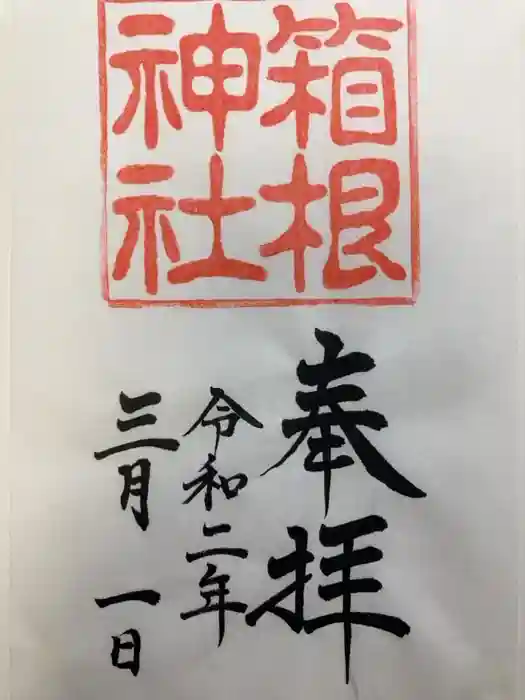 箱根
神社
奉拝
令和二年
三月一日